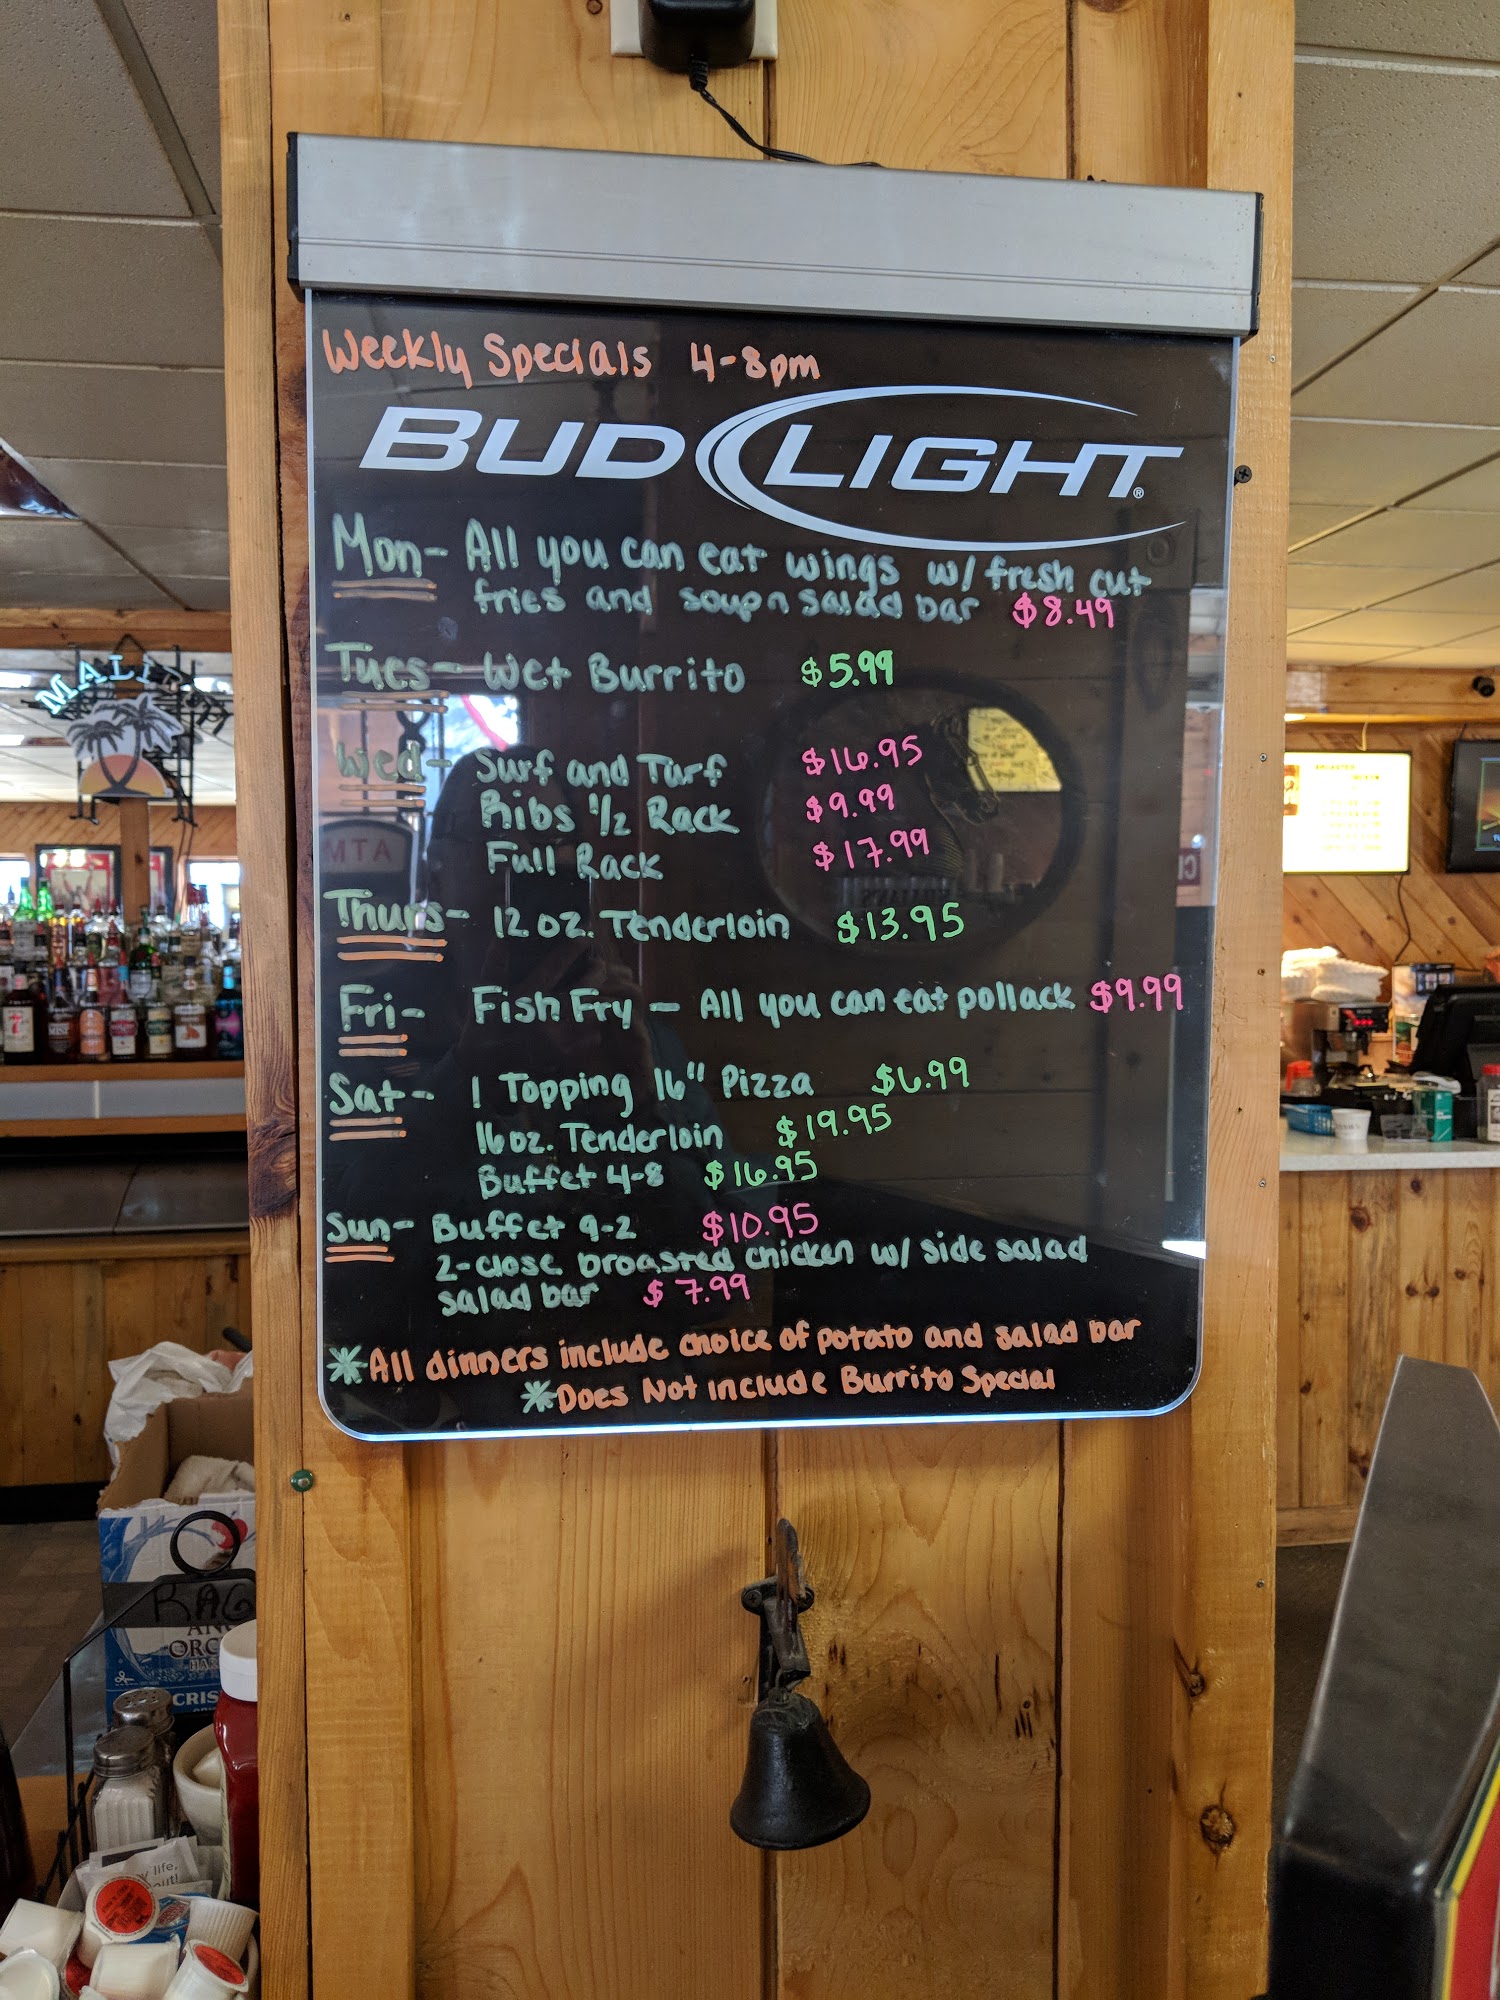 Weekly Specials 4-8pm
BUD LIGHT ®
Mon- All you can eat wings w/ fresh cut
fries and soup n salad bar $8.49
Tues- Wet Burrito $5.99
Wed- Surf and Turf $16.95
Ribs 1/2 Rack $9.99
Full Rack $17.99
Thurs- 12 oz. Tenderloin $13.95
Fri- Fish Fry - All you can eat pollack $9.99
Sat- 1 Topping 16" Pizza $6.99
16 oz. Tenderloin $19.95
Buffet 4-8 $16.95
Sun- Buffet 9-2 $10.95
broasted chicken w/ side salad
salad bar $7.99
*All dinners include choice of potato and salad bar
*Does Not include Burrito Special
ATM
RAG